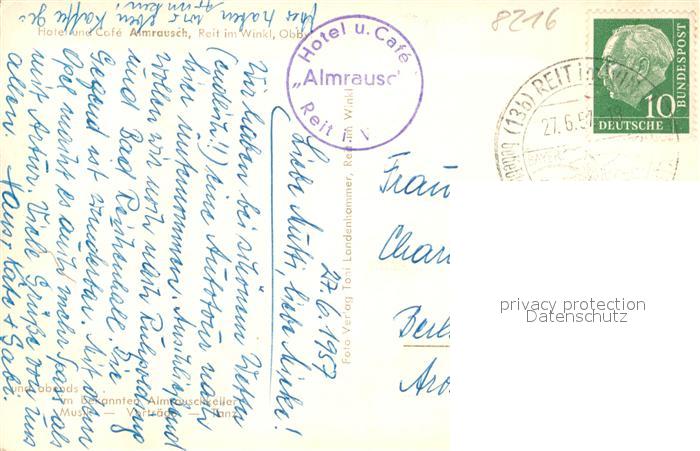 Hier haben wir eben Kaffe ge-
trunken!
Hotel und Café Almrausch, Reit im Winkl, Obby
Hotel u. Café
„Almrausc
Reit i. W
8216
(13b) REIT im
27.6.57
10
DEUTSCHE
BUNDESPOST
27.6.1957
Liebe Mutti, liebe Mieke!
Wir haben bei schönem Wetter
(endlich!) eine Autotour nach
hier unternommen. Anschließend
wollen wir noch nach Ruhpolding
und Bad Reichenhall. Die
Gegend ist wunderbar. Mit dem
Opel macht es auch mehr Spaß als
mit Artur. Viele Grüße von uns
allen. Hans, Käte + Gabi.
Foto Verlag Toni Landenhammer, Reit im Winkl
Frau
Char
Berl
und abends
im bekannten Almrauschkeller
Musik — Vorträge — Tanz
privacy protection
Datenschutz